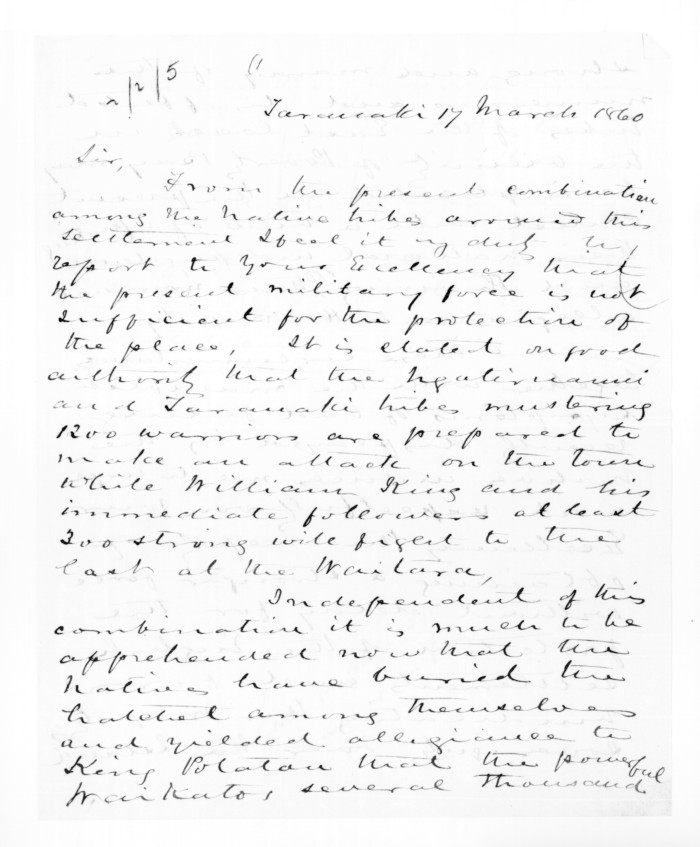 2/2/5
Taranaki 17 March 1860
Sir,
From the present combination
among the Native tribes around this
settlement I feel it my duty to
report to Your Excellency that
the present military force is not
sufficient for the protection of
the place, It is stated on good
authority that the Ngatiruanui
and Taranaki tribes mustering
1200 warriors are prepared to
make an attack on the town
while William King and his
immediate followers at least
300 strong will fight to the
last at the Waitara,
Independent of this
combination it is much to be
apprehended now that the
Natives have buried the
hatchet among themselves
and yielded allegiance to
King Potatau that the powerful
Waikatos, several thousand